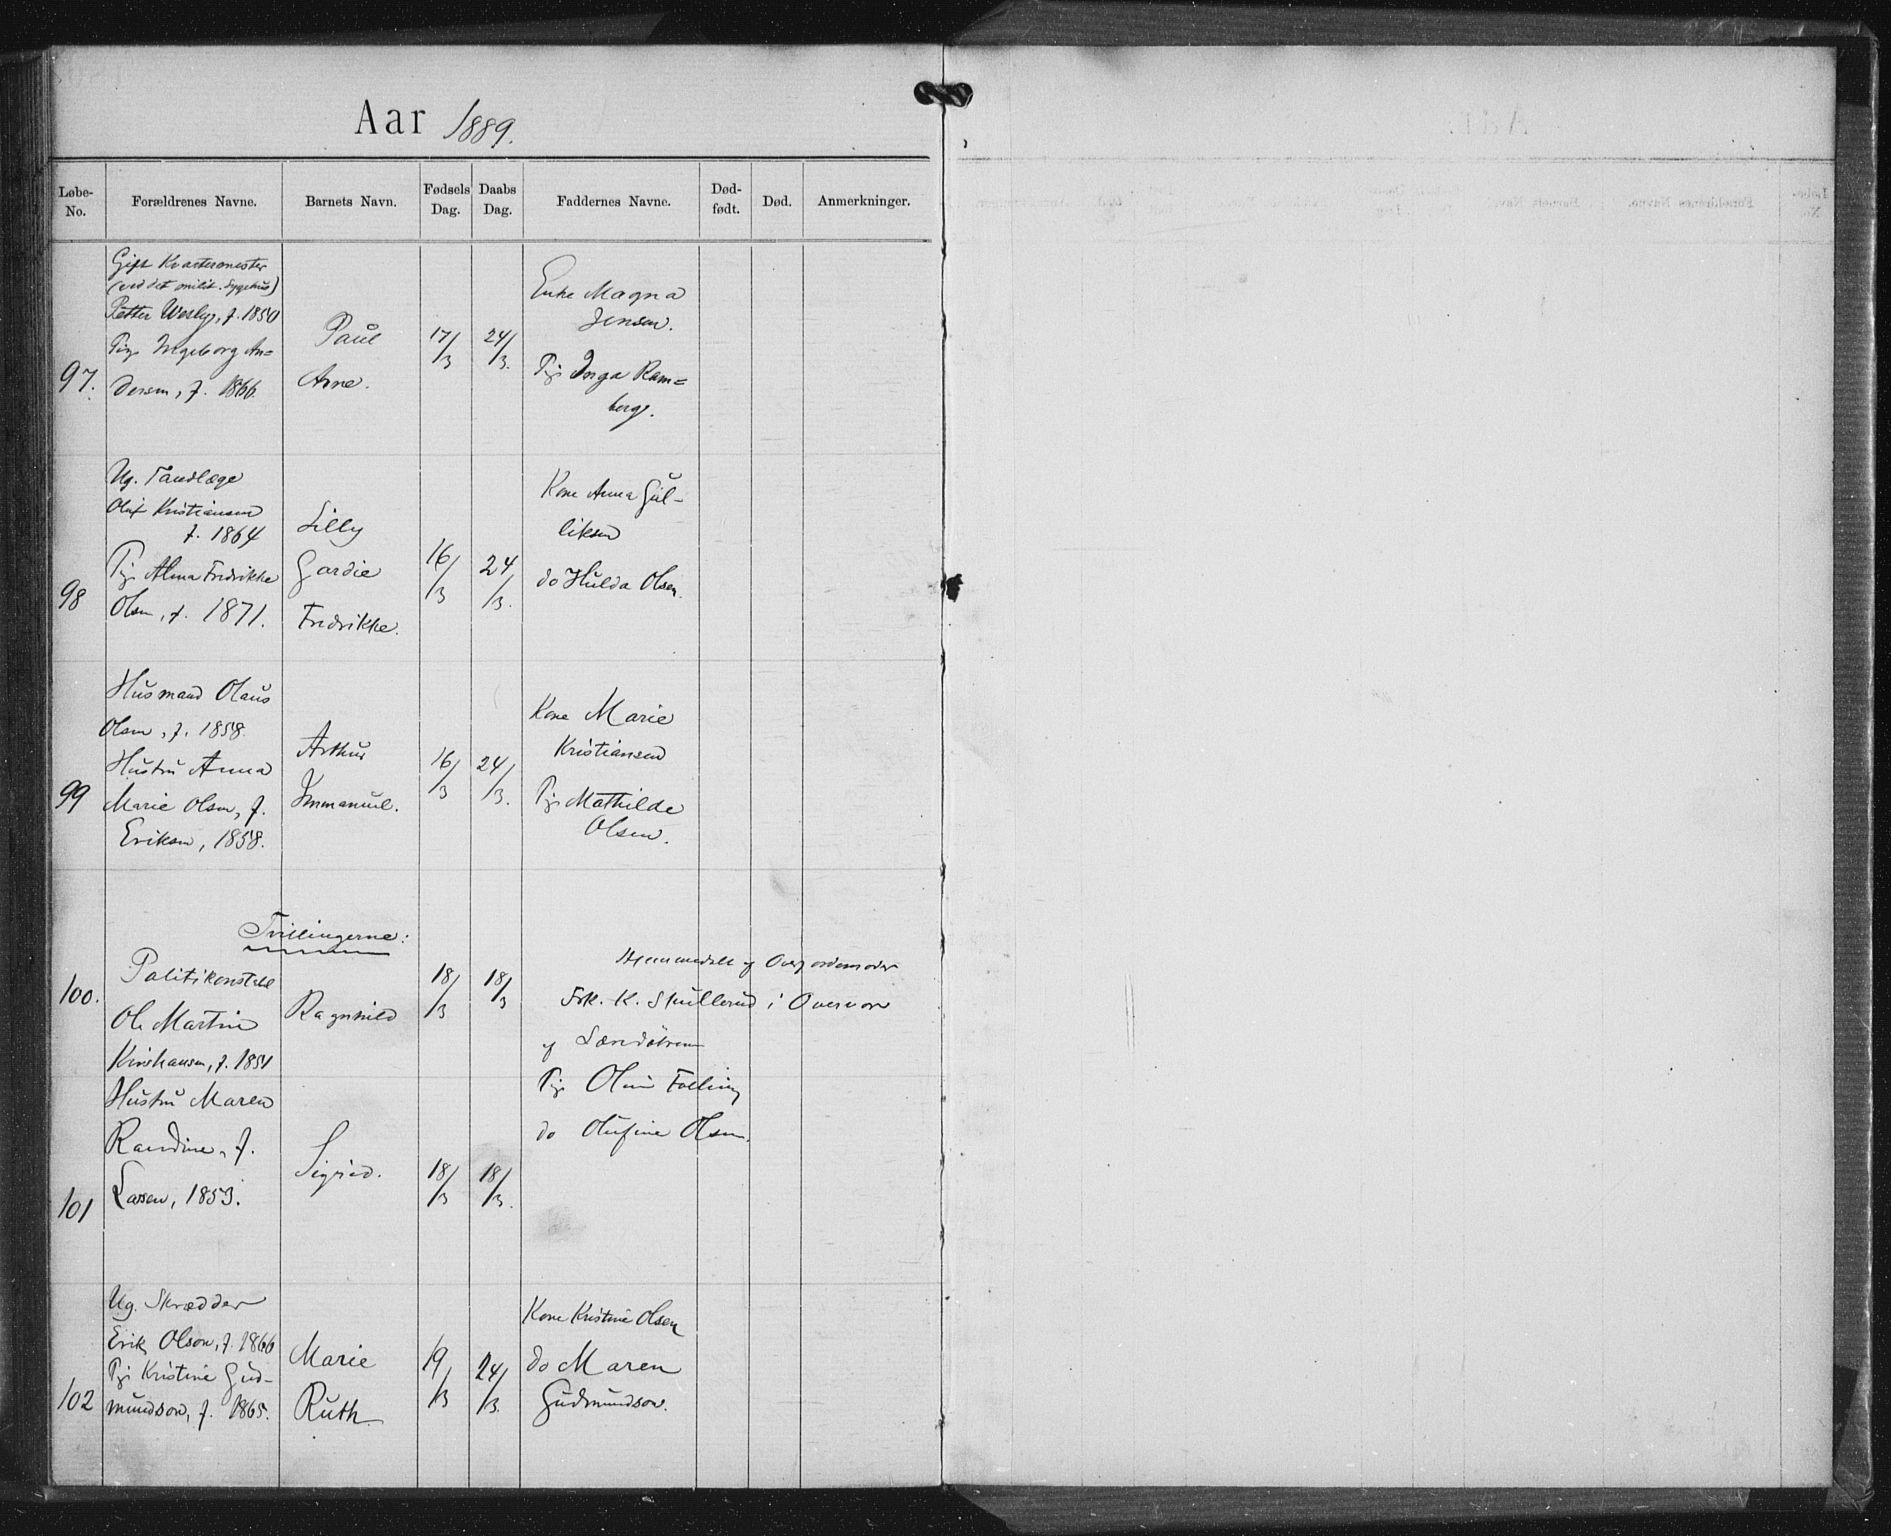 Aar 1889.
Løbe-No. Forældrenes Navne. Barnets Navn. Fødsels Dag. Daabs Dag. Faddernes Navne. Dødfødt. Død. Anmerkninger.
97.
Gift Kvartermester
(ved det milit. Sygehus)
Petter Wesly, f. 1850
Pige Ingeborg An=
dersen, f. 1866.
Paul
Arne.
17/3
24/3.
Enke Magna
Jensen.
Pige Inga Ram=
berg.
98
Ug. Tandlæge
Olaf Kristiansen
f. 1864
Pige Alma Fredrikke
Olsen, f. 1871.
Lilly
Gardie
Fredrikke.
16/3
24/3.
Kone Anna Gul-
liksen
do Hulda Olsen.
99
Husmand Olaus
Olsen, f. 1858.
Hustru Anna
Marie Olsen, f.
Eriksen, 1858.
Arthur
Immanuel.
16/3
24/3.
Kone Marie
Kristiansen
Pige Mathilde
Olsen.
Tvillingerne:
100.
Politikonstabel
Ole Martin
Kristiansen, f. 1851
Hustru Maren
Randine, f.
Larsen, 1853.
Ragnhild
18/3
18/3
Hjemmedøbt af Overjordemoder
Frk. K. Skullerud i Overvær
af
Pige Oline Folling
do Olufine Olsen.
101
Sigrid.
18/3
18/3.
102
Ug. Skrædder
Erik Olson, f. 1866
Pige Kristine Gud-
mundson, f. 1865.
Marie
Ruth
19/3
24/3.
Kone Kristine Olsen
do Maren
Gudmundson.